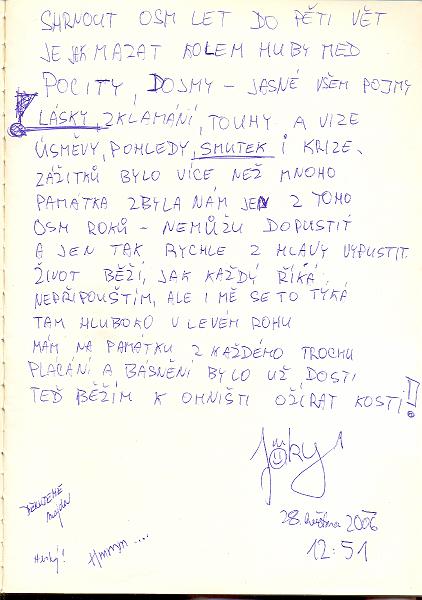 SHRNOUT OSM LET DO PĚTI VĚT
JE JAK MAZAT KOLEM HUBY MED
POCITY, DOJMY – JASNÉ VŠEM POJMY
LÁSKY, ZKLAMÁNÍ, TOUHY A VIZE
ÚSMĚVY, POHLEDY, SMUTEK I KRIZE.
ZÁŽITKŮ BYLO VÍCE NEŽ MNOHO
PAMÁTKA ZBYLA NÁM JEN Z TOHO
OSM ROKŮ – NEMŮŽU DOPUSTIT
A JEN TAK RYCHLE Z HLAVY VYPUSTIT
ŽIVOT BĚŽÍ, JAK KAŽDÝ ŘÍKÁ
NEPŘIPOUŠTÍM, ALE I MĚ SE TO TÝKÁ
TAM HLUBOKO V LEVÉM ROHU
MÁM NA PAMÁTKU Z KAŽDÉHO TROCHU
PLACÁNÍ A BÁSNĚNÍ BYLO UŽ DOSTI
TEĎ BĚŽÍM K OHNIŠTI OŽÍRAT KOSTI!
28. května 2006
12:51
DĚKUJEME
Hmmm....